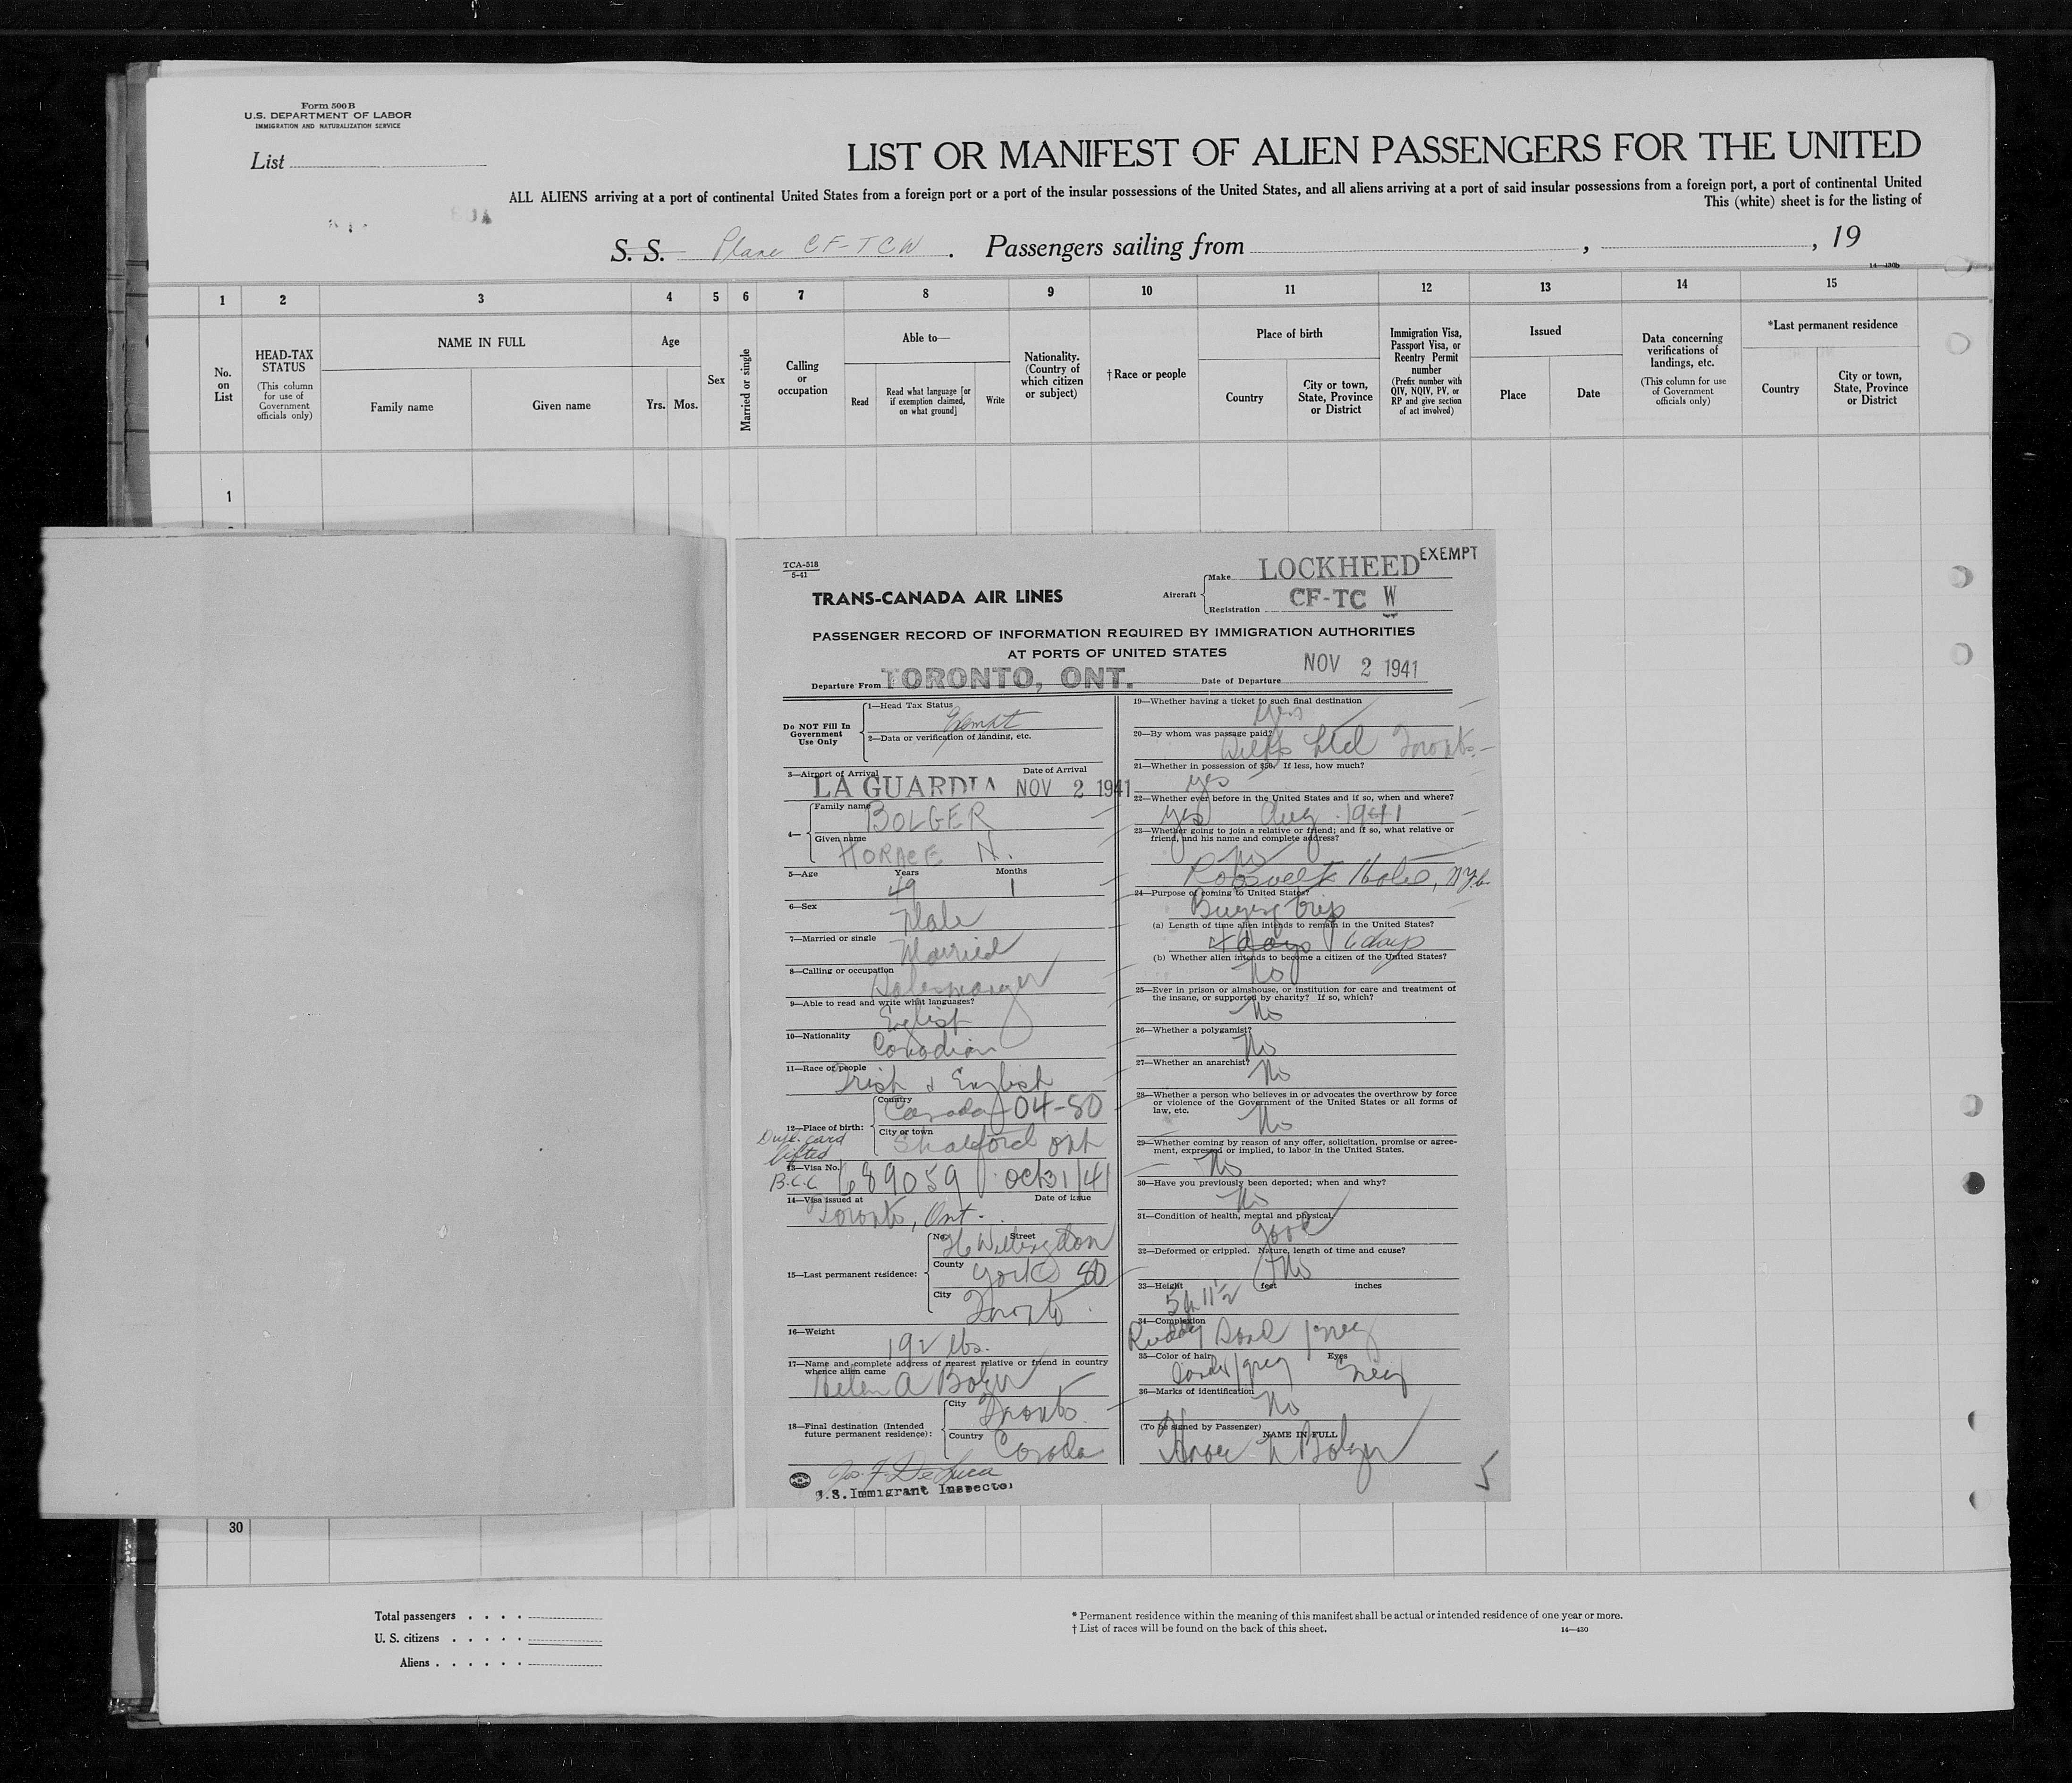 Form 500 B
U.S. DEPARTMENT OF LABOR
IMMIGRATION AND NATURALIZATION SERVICE
List
LIST OR MANIFEST OF ALIEN PASSENGERS FOR THE UNITED
ALL ALIENS arriving at a port of continental United States from a foreign port or a port of the insular possessions of the United States, and all aliens arriving at a port of said insular possessions from a foreign port, a port of continental United
This (white) sheet is for the listing of
S. S. Plane CF-TCW. Passengers sailing from , , 19
14—430b
1 2 3 4 5 6 7 8 9 10 11 12 13 14 15
No. on List
HEAD-TAX STATUS
(This column for use of Government officials only)
NAME IN FULL
Family name
Given name
Age
Yrs. Mos.
Sex
Married or single
Calling or occupation
Able to—
Read
Read what language [or if exemption claimed, on what ground]
Write
Nationality. (Country of which citizen or subject)
†Race or people
Place of birth
Country
City or town, State, Province or District
Immigration Visa, Passport Visa, or Reentry Permit number
(Prefix number with QIV, NQIV, PV, or RP and give section of act involved)
Issued
Place
Date
Data concerning verifications of landings, etc.
(This column for use of Government officials only)
*Last permanent residence
Country
City or town, State, Province or District
1
TCA-518
5-41
EXEMPT
TRANS-CANADA AIR LINES
Aircraft
Make LOCKHEED
Registration CF-TC W
PASSENGER RECORD OF INFORMATION REQUIRED BY IMMIGRATION AUTHORITIES
AT PORTS OF UNITED STATES
Departure From TORONTO, ONT. Date of Departure NOV 2 1941
Do NOT Fill In Government Use Only
1—Head Tax Status Exempt
2—Data or verification of landing, etc.
3—Airport of Arrival Date of Arrival
LA GUARDIA NOV 2 1941
4— Family name BOLGER
Given name HORACE N.
5—Age Years 49 Months 1
6—Sex Male
7—Married or single Married
8—Calling or occupation
9—Able to read and write what languages?
English
10—Nationality Canadian
11—Race or people Irish & English
12—Place of birth: Country Canada 04-80
City or town Ont
Dupl. card lifted
13—Visa No. 689059 Oct 31/41
B.C.C
14—Visa issued at Date of issue
Toronto, Ont.
15—Last permanent residence:
No. Street Wellington
County York 80
City Toronto
16—Weight 192 lbs.
17—Name and complete address of nearest relative or friend in country whence alien came
Helen A Bolger
18—Final destination (Intended future permanent residence):
City Toronto
Country Canada
Jos. F. DeLuca
U.S. Immigrant Inspector
19—Whether having a ticket to such final destination
yes
20—By whom was passage paid?
Ltd Toronto
21—Whether in possession of $50. If less, how much?
yes
22—Whether ever before in the United States and if so, when and where?
yes Aug. 1941
23—Whether going to join a relative or friend; and if so, what relative or friend, and his name and complete address?
No
Roosevelt Hotel, NYC
24—Purpose of coming to United States?
Buying trip
(a) Length of time alien intends to remain in the United States?
4 days 6 days
(b) Whether alien intends to become a citizen of the United States?
No
25—Ever in prison or almshouse, or institution for care and treatment of the insane, or supported by charity? If so, which?
No
26—Whether a polygamist?
No
27—Whether an anarchist?
No
28—Whether a person who believes in or advocates the overthrow by force or violence of the Government of the United States or all forms of law, etc.
No
29—Whether coming by reason of any offer, solicitation, promise or agreement, expressed or implied, to labor in the United States.
No
30—Have you previously been deported; when and why?
No
31—Condition of health, mental and physical
good
32—Deformed or crippled. Nature, length of time and cause?
No
33—Height feet inches
5 ft 11 1/2
34—Complexion
Ruddy
35—Color of hair Eyes
grey
36—Marks of identification
No
(To be signed by Passenger)
NAME IN FULL
Horace N Bolger
5
30
Total passengers
U. S. citizens
Aliens
* Permanent residence within the meaning of this manifest shall be actual or intended residence of one year or more.
† List of races will be found on the back of this sheet.
14—430